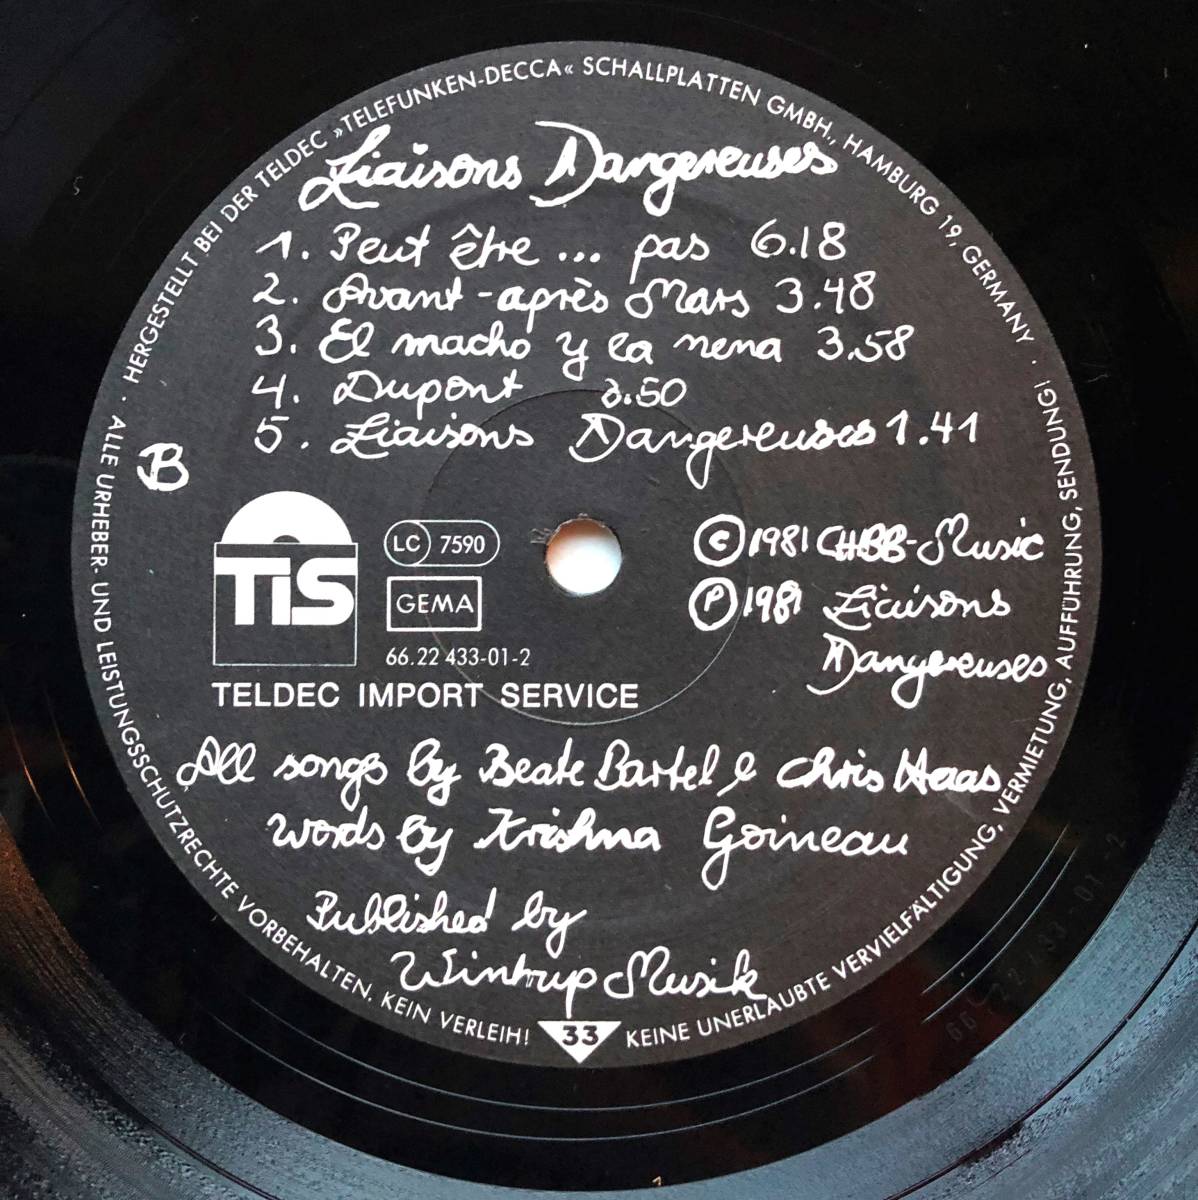 HERGESTELLT BEI DER TELDEC »TELEFUNKEN-DECCA« SCHALLPLATTEN GMBH., HAMBURG 19, GERMANY ·
Liaisons Dangereuses
1. Peut être ... pas 6.18
2. Avant-après Mars 3.48
3. El macho y la nena 3.58
4. Dupont 3.50
5. Liaisons Dangereuses 1.41
B
TiS
LC 7590
GEMA
66.22 433-01-2
TELDEC IMPORT SERVICE
© 1981 CHBB-Music
℗ 1981 Liaisons
Dangereuses
All songs by Beate Bartel & Chris Haas
words by Krishna Goineau
Published by
Wintrup Musik
33
· ALLE URHEBER- UND LEISTUNGSSCHUTZRECHTE VORBEHALTEN. KEIN VERLEIH! KEINE UNERLAUBTE VERVIELFÄLTIGUNG, VERMIETUNG, AUFFÜHRUNG, SENDUNG!